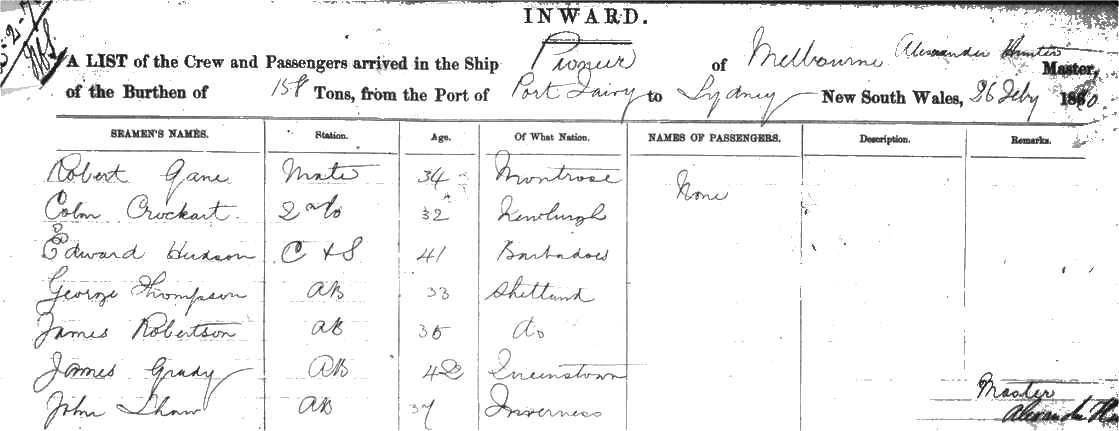 INWARD.
A LIST of the Crew and Passengers arrived in the Ship Pioneer of Melbourne Alexander Hunter Master,
of the Burthen of Tons, from the Port of Port Fairy to Sydney New South Wales, 26 Feby 1880
SEAMEN'S NAMES. Station. Age. Of What Nation. NAMES OF PASSENGERS. Description. Remarks.
Robert Gane Mate 34 Montrose None
Colm Crockart 2nd do 32 Newburgh
Edward Hudson C & S 41 Barbadoes
George Thompson AB 33 Shetland
James Robertson AB 35 do
James Grady AB 42 Queenstown
John Shaw AB 37 Inverness
Master
Alexander